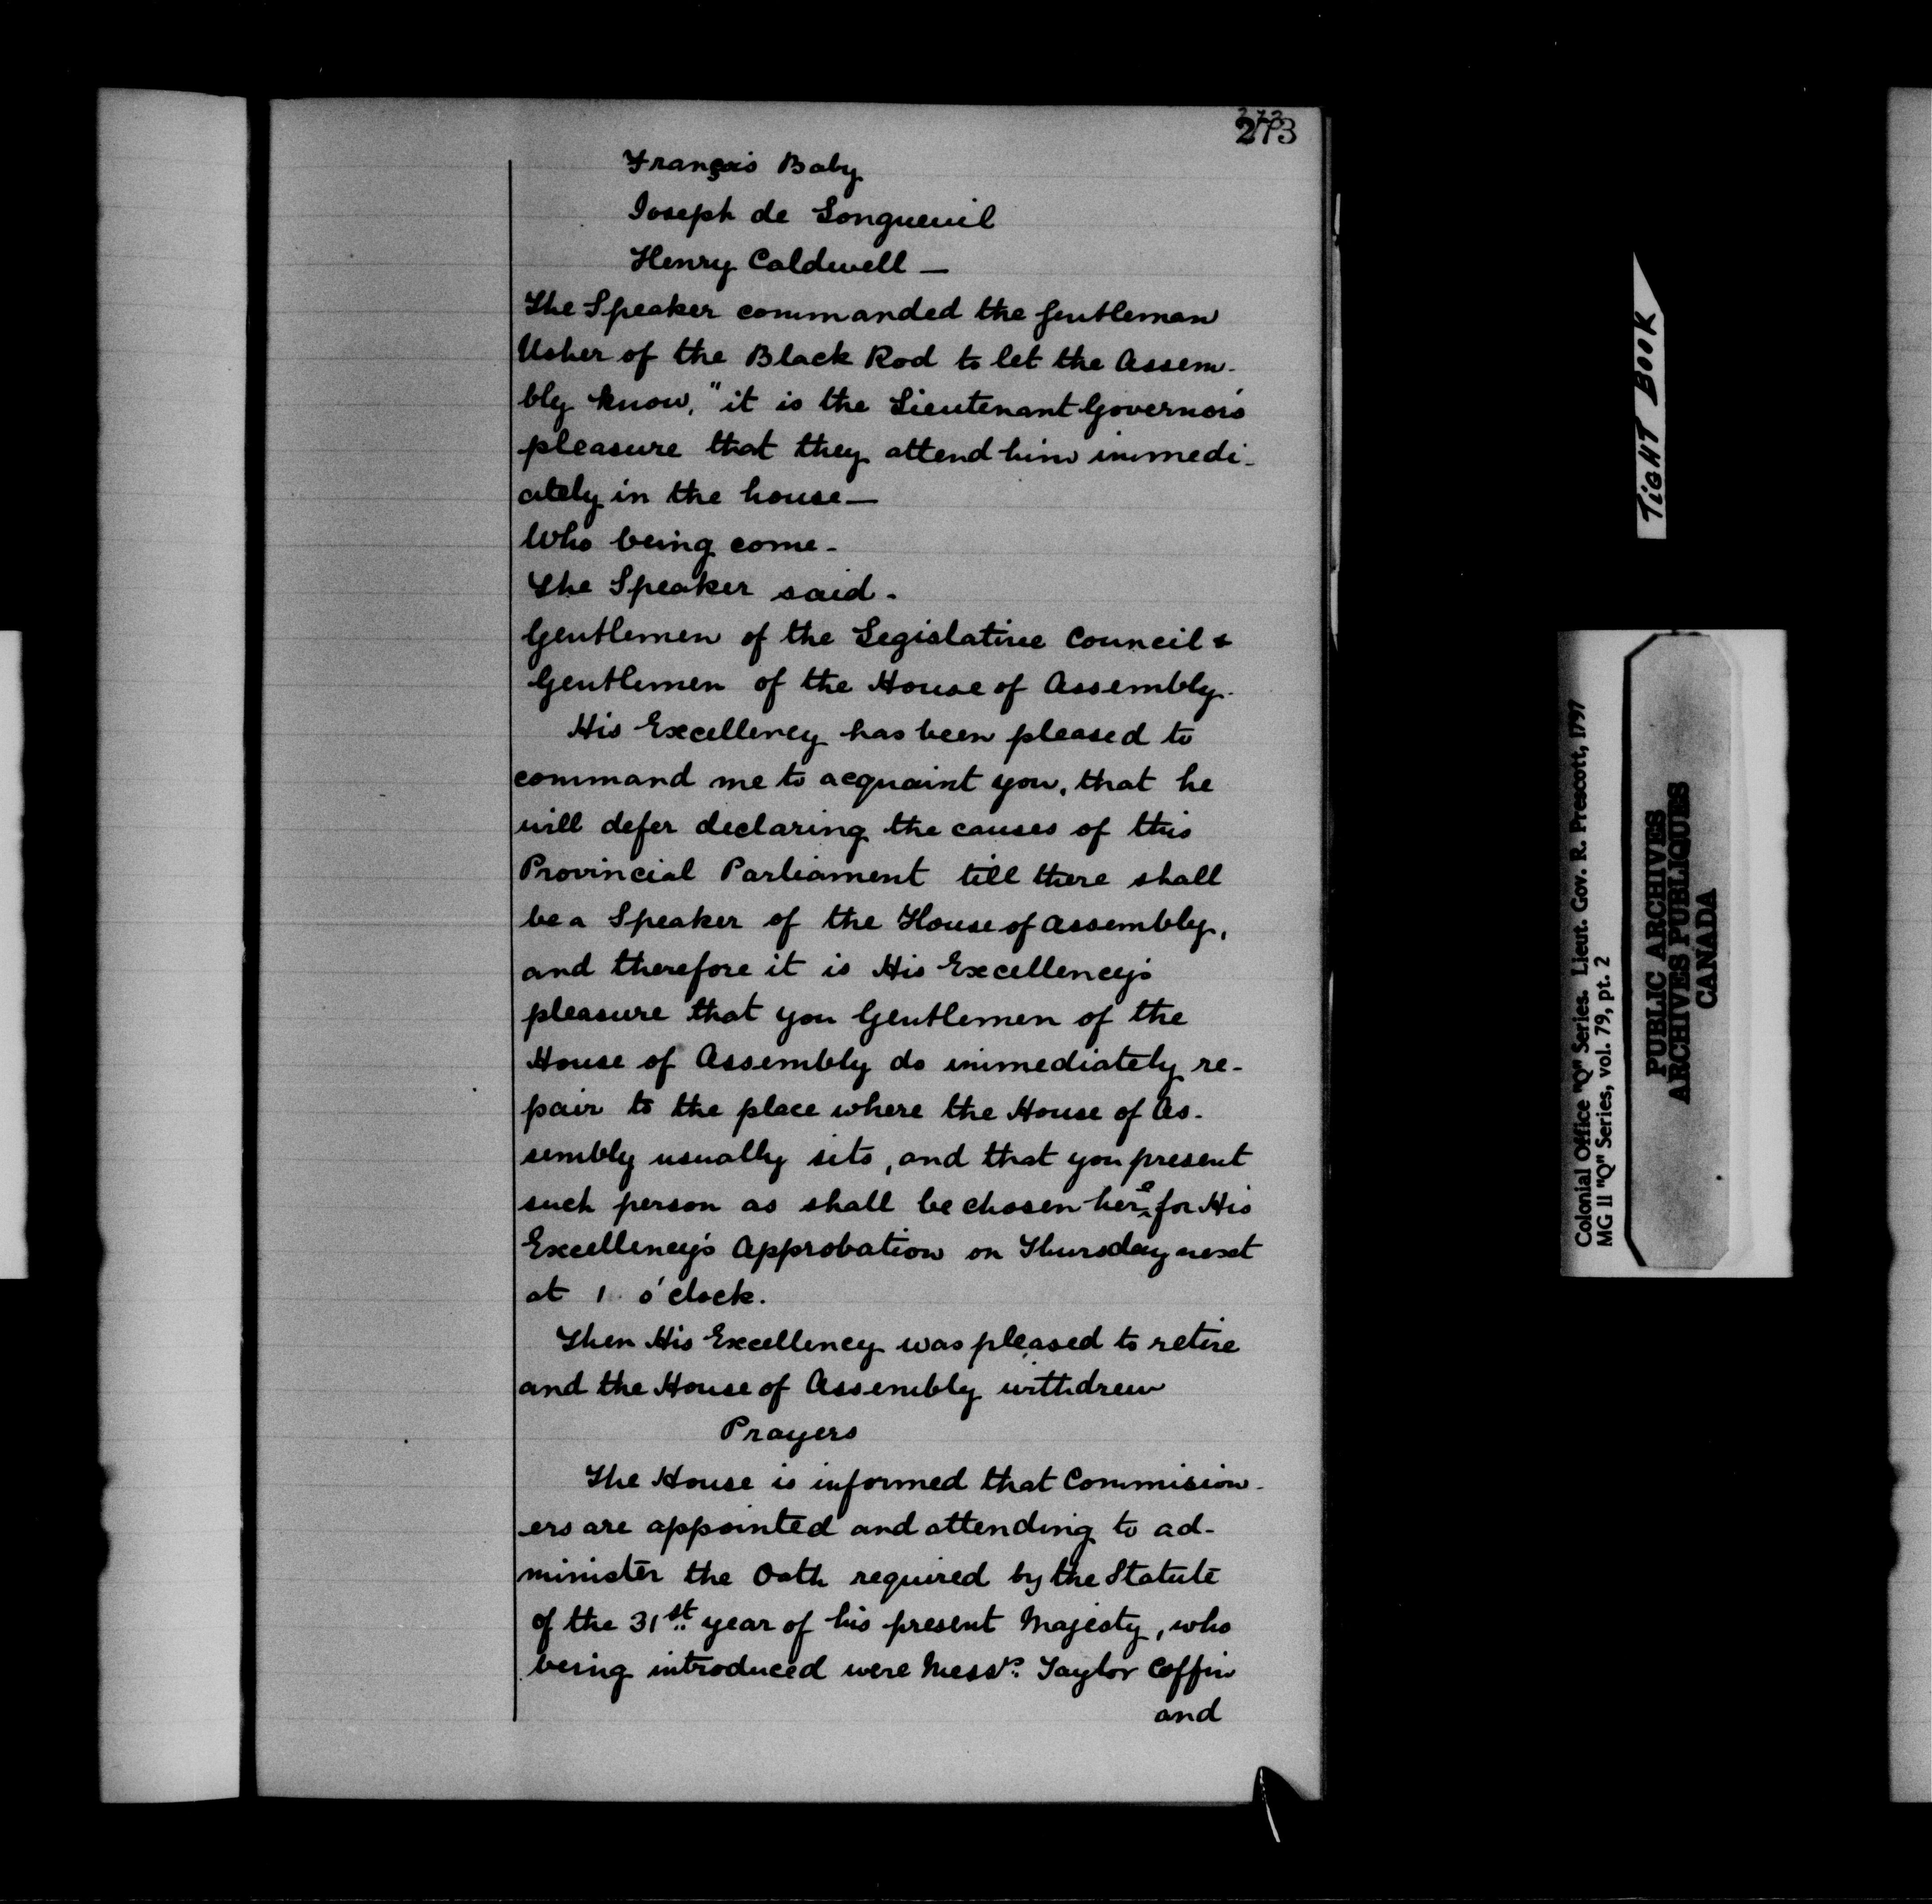 273
François Baby
Joseph de Longueuil
Henry Caldwell —
The Speaker commanded the Gentleman
Usher of the Black Rod to let the Assem-
bly know, "it is the Lieutenant Governor's
pleasure that they attend him immedi-
ately in the house —
Who being come -
The Speaker said -
Gentlemen of the Legislative Council &
Gentlemen of the House of Assembly.
His Excellency has been pleased to
command me to acquaint you, that he
will defer declaring the causes of this
Provincial Parliament till there shall
be a Speaker of the House of Assembly,
and therefore it is His Excellency's
pleasure that you Gentlemen of the
House of Assembly do immediately re-
pair to the place where the House of As-
sembly usually sits, and that you present
such person as shall be chosen here for His
Excellency's Approbation on Thursday next
at 1 o'clock.
Then His Excellency was pleased to retire
and the House of Assembly withdrew
Prayers
The House is informed that Commision-
ers are appointed and attending to ad-
minister the Oath required by the Statute
of the 31st year of his present Majesty, who
being introduced were Messrs. Taylor Coffin
and
TIGHT BOOK
Colonial Office "Q" Series. Lieut. Gov. R. Prescott, 1797
MG 11 "Q" Series, vol. 79, pt. 2
PUBLIC ARCHIVES
ARCHIVES PUBLIQUES
CANADA